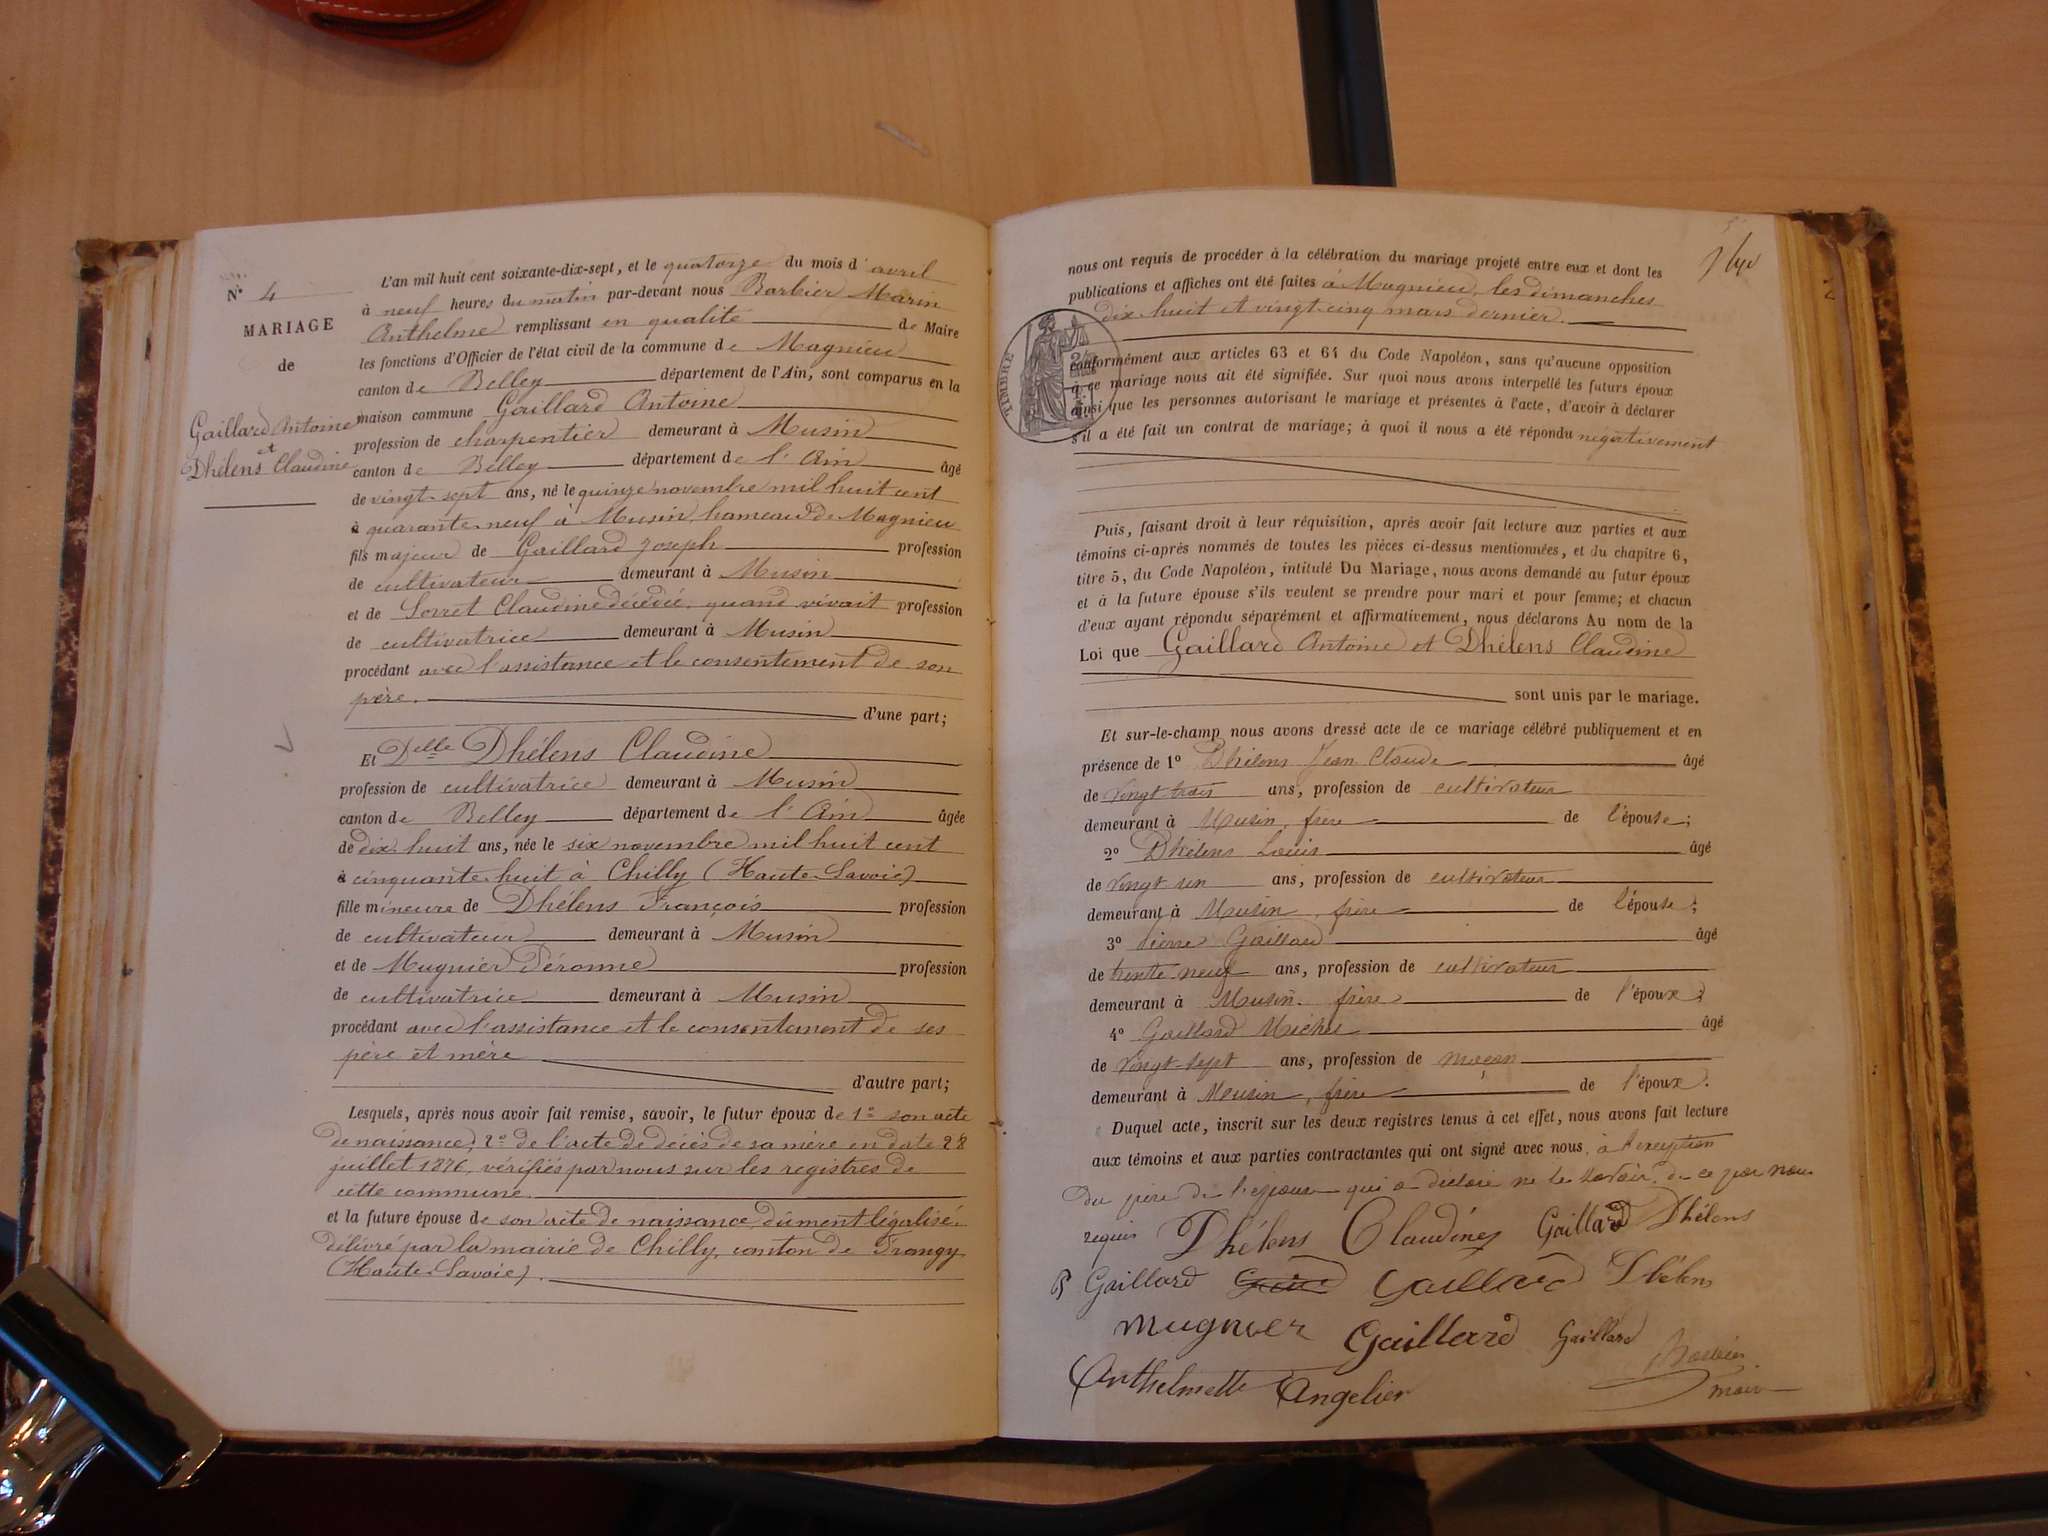 N° 4
MARIAGE
de
Gaillard Antoine
et
Dhélens Claudine
L'an mil huit cent soixante-dix-sept, et le quatorze du mois d'avril
à neuf heures du matin par-devant nous Barbier Marin
Anthelme remplissant en qualité de Maire
les fonctions d'Officier de l'état civil de la commune de Magnieu
canton de Belley département de l'Ain, sont comparus en la
maison commune Gaillard Antoine
profession de charpentier demeurant à Musin
canton de Belley département de l'Ain âgé
de vingt-sept ans, né le quinze novembre mil huit cent
à quarante-neuf à Musin, hameau de Magnieu
fils majeur de Gaillard Joseph profession
de cultivateur demeurant à Musin
et de Sorret Claudine décédée, quand vivait profession
de cultivatrice demeurant à Musin
procédant avec l'assistance et le consentement de son
père. d'une part;
Et Delle Dhélens Claudine
profession de cultivatrice demeurant à Musin
canton de Belley département de l'Ain âgée
de dix-huit ans, née le six novembre mil huit cent
à cinquante-huit à Chilly (Haute-Savoie)
fille mineure de Dhélens François profession
de cultivateur demeurant à Musin
et de Mugnier Péronne profession
de cultivatrice demeurant à Musin
procédant avec l'assistance et le consentement de ses
père et mère
d'autre part;
Lesquels, après nous avoir fait remise, savoir, le futur époux de 1° son acte
de naissance, 2° de l'acte de décès de sa mère en date 28
juillet 1876, vérifiés par nous sur les registres de
cette commune.
et la future épouse de son acte de naissance dûment légalisé.
délivré par la mairie de Chilly, canton de Frangy
(Haute-Savoie).
nous ont requis de procéder à la célébration du mariage projeté entre eux et dont les
publications et affiches ont été faites à Magnieu, les dimanches
dix-huit et vingt-cinq mars dernier.
TIMBRE
conformément aux articles 63 et 64 du Code Napoléon, sans qu'aucune opposition
à ce mariage nous ait été signifiée. Sur quoi nous avons interpellé les futurs époux
ainsi que les personnes autorisant le mariage et présentes à l'acte, d'avoir à déclarer
s'il a été fait un contrat de mariage; à quoi il nous a été répondu négativement
Puis, faisant droit à leur réquisition, après avoir fait lecture aux parties et aux
témoins ci-après nommés de toutes les pièces ci-dessus mentionnées, et du chapitre 6,
titre 5, du Code Napoléon, intitulé Du Mariage, nous avons demandé au futur époux
et à la future épouse s'ils veulent se prendre pour mari et pour femme; et chacun
d'eux ayant répondu séparément et affirmativement, nous déclarons Au nom de la
Loi que Gaillard Antoine et Dhélens Claudine
sont unis par le mariage.
Et sur-le-champ nous avons dressé acte de ce mariage célébré publiquement et en
présence de 1° Dhélens Jean Claude âgé
de vingt trois ans, profession de cultivateur
demeurant à Musin, frère de l'épouse;
2° Dhélens Louis âgé
de vingt un ans, profession de cultivateur
demeurant à Musin, frère de l'épouse;
3° Pierre Gaillard âgé
de trente-neuf ans, profession de cultivateur
demeurant à Musin. frère de l'époux;
4° Gaillard Michel âgé
de vingt-sept ans, profession de maçon
demeurant à Musin, frère de l'époux.
Duquel acte, inscrit sur les deux registres tenus à cet effet, nous avons fait lecture
aux témoins et aux parties contractantes qui ont signé avec nous, à l'exception
du père de l'épouse qui a déclaré ne le savoir, de ce par nous
requis Dhélens Claudine Gaillard Dhélens
Gaillard Gaillard Dhélens
Mugnier Gaillard Gaillard
Anthelmette Angelier Barbier
maire